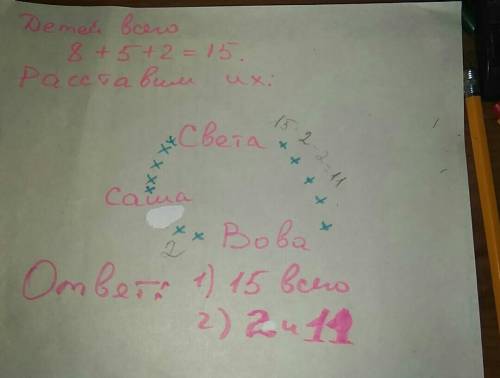 Детей всего
8 + 5 + 2 = 15.
Расставим их:
Света
15-2-2=11
Саша
2
Вова
Ответ: 1) 15 всего
2) 2 и 11